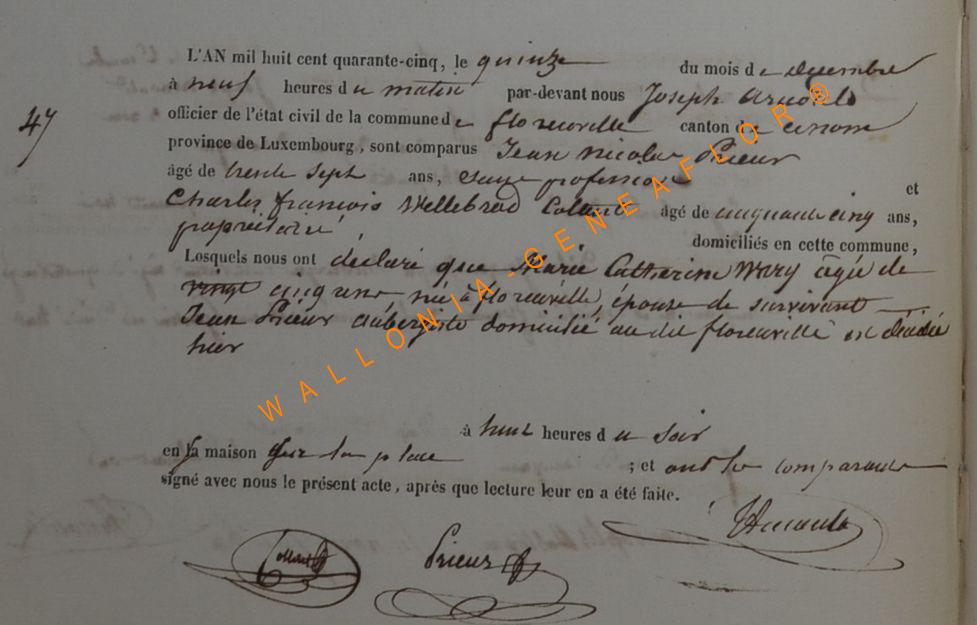 L'AN mil huit cent quarante-cinq, le quinze du mois de decembre
à neuf heures du matin par-devant nous Joseph Arnould
officier de l'état civil de la commune de florenville canton de
47
province de Luxembourg, sont comparus Jean Nicolas Prieur
âgé de trente sept ans, sans profession et
Charles françois Collard âgé de cinquante cinq ans,
propriétaire, domiciliés en cette commune,
Losquels nous ont déclaré que Marie Catherine Wary âgée de
vingt cinq ans née à florenville, épouse de survivant
Jean Prieur aubergiste domicilié au dit florenville est décédée
hier
à huit heures du soir
en sa maison sur la place ; et ont les comparants
signé avec nous le présent acte, après que lecture leur en a été faite.
JArnould
Collard Prieur
WALLONIA-GENEAFLOR®